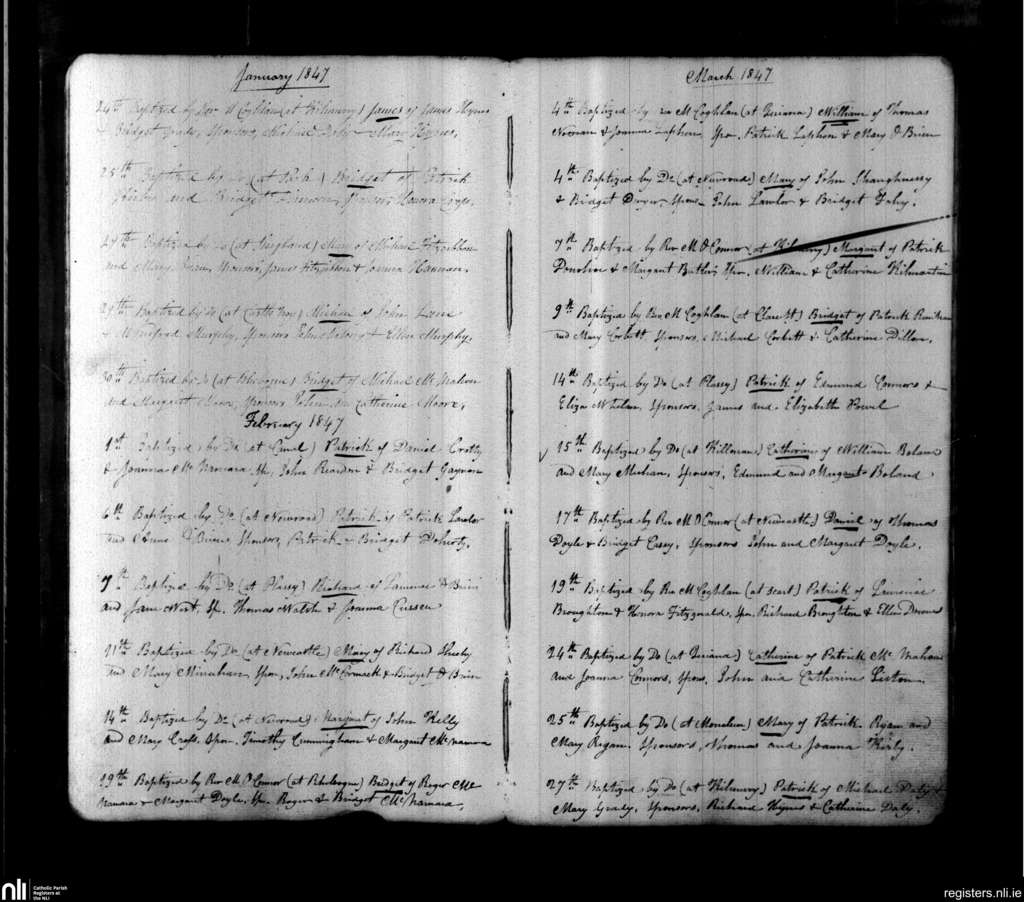 January 1847
24th Baptized by Rev M Coghlan (at Kilmurry) James of James Hynes
& Bridget Sponsors, Michael & Mary Hynes,
25th Baptized by Do (at Park) Bridget of Patrick
and Bridget Sponsor, Honora
27th Baptized by Do (at of Michael Fitzgibbon
and Mary Sponsors, James Fitzgibbon & Joanna Hannan,
29th Baptized by Do (at Castle Troy) Michael of John
& Winifred Murphy, Sponsors John & Ellen Murphy,
30th Baptized by Do (at Rhebogue) Bridget of Michael Mc Mahon
and Margaret Moore, Sponsors John & Catherine Moore,
February 1847
1st Baptized by Do (at Patrick of Daniel Crotty
& Joanna Mc Namara, Sp. John Reardon & Bridget Gaynor
6th Baptized by Do (at Newroad) Patrick of Patrick Lawlor
and O Brien Sponsors, Patrick & Bridget Doherty,
7th Baptized by Do (at Plassy) Richard of Laurence O Brien
and Jane West, Sp. Thomas Walsh & Joanna Cussen
11th Baptized by Do (at Newcastle) Mary of Richard
and Mary Minahan, Spon, John Mc Cormack & Bridget O Brien
14th Baptized by Do (at Newroad) Margaret of John Kelly
and Mary Croft, Spon. Timothy Cunningham & Margaret McNamara
19th Baptized by Rev M O'Connor (at Rhebogue) Bridget of Roger Mc
Namara & Margaret Doyle, Sp. Roger & Bridget McNamara,
March 1847
4th Baptized by Rev M Coghlan (at William of Thomas
Noonan & Joanna Spon. Patrick & Mary O Brien
4th Baptized by Do (at Newroad) Mary of John Shaughnessy
& Bridget Dwyer, Spons. John Lawlor & Bridget Fahy.
7th Baptized by Rev M O'Connor (at Kilmurry) Margaret of Patrick
Donohoe & Margaret Butler, Spon. William & Catherine Kilmartin
9th Baptized by Rev M Coghlan (at Clare St) Bridget of Patrick
and Mary Corbett, Sponsors, Michael Corbett & Catherine Dillon,
14th Baptized by Do (at Plassy) Patrick of Edmund Connors &
Eliza Whelan, Sponsors, James and Elizabeth Powel
15th Baptized by Do (at Killonan) Catherine of William Boland
and Mary Meehan, Sponsors, Edmund and Margaret Boland
17th Baptized by Rev M O'Connor (at Newcastle) Daniel of Thomas
Doyle & Bridget Casey, Sponsors John and Margaret Doyle,
19th Baptized by Rev M Coghlan (at Scart) Patrick of Laurence
Broughton & Honora Fitzgerald, Spn. Richard Broughton & Ellen
24th Baptized by Do (at Catherine of Patrick Mc Mahon
and Joanna Connors, Spons, John and Catherine Liston
25th Baptized by Do (at Monaleen) Mary of Patrick Ryan and
Mary Regan, Sponsors, Thomas and Joanna Kirby,
27th Baptized by Do (at Kilmurry) Patrick of Michael Daly &
Mary Grady, Sponsors, Richard Hynes & Catherine Daly,
nli
Catholic Parish
Registers at
the NLI
registers.nli.ie